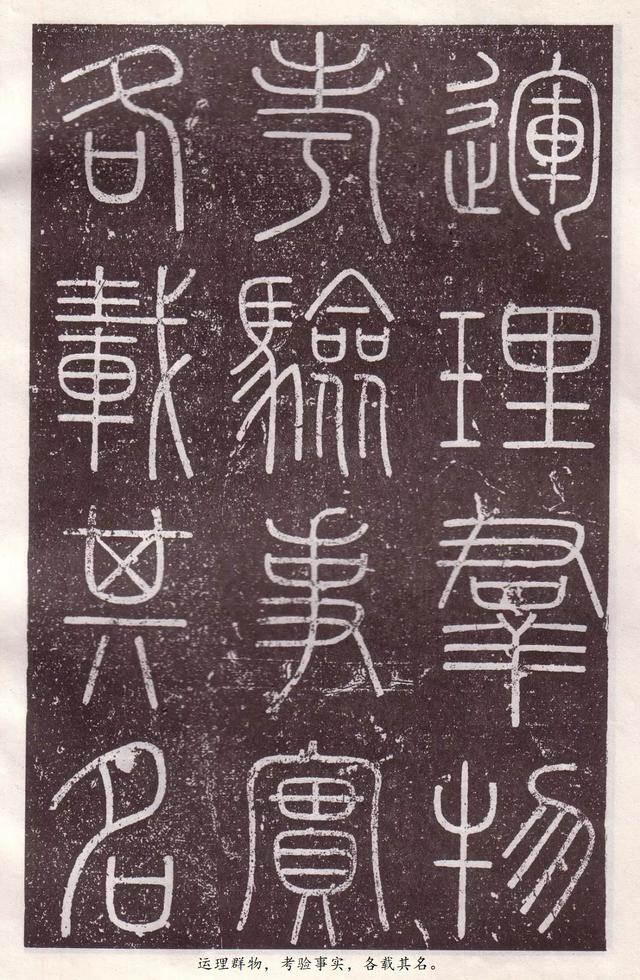 運理羣物
考驗事實
各載其名
运理群物，考验事实，各载其名。